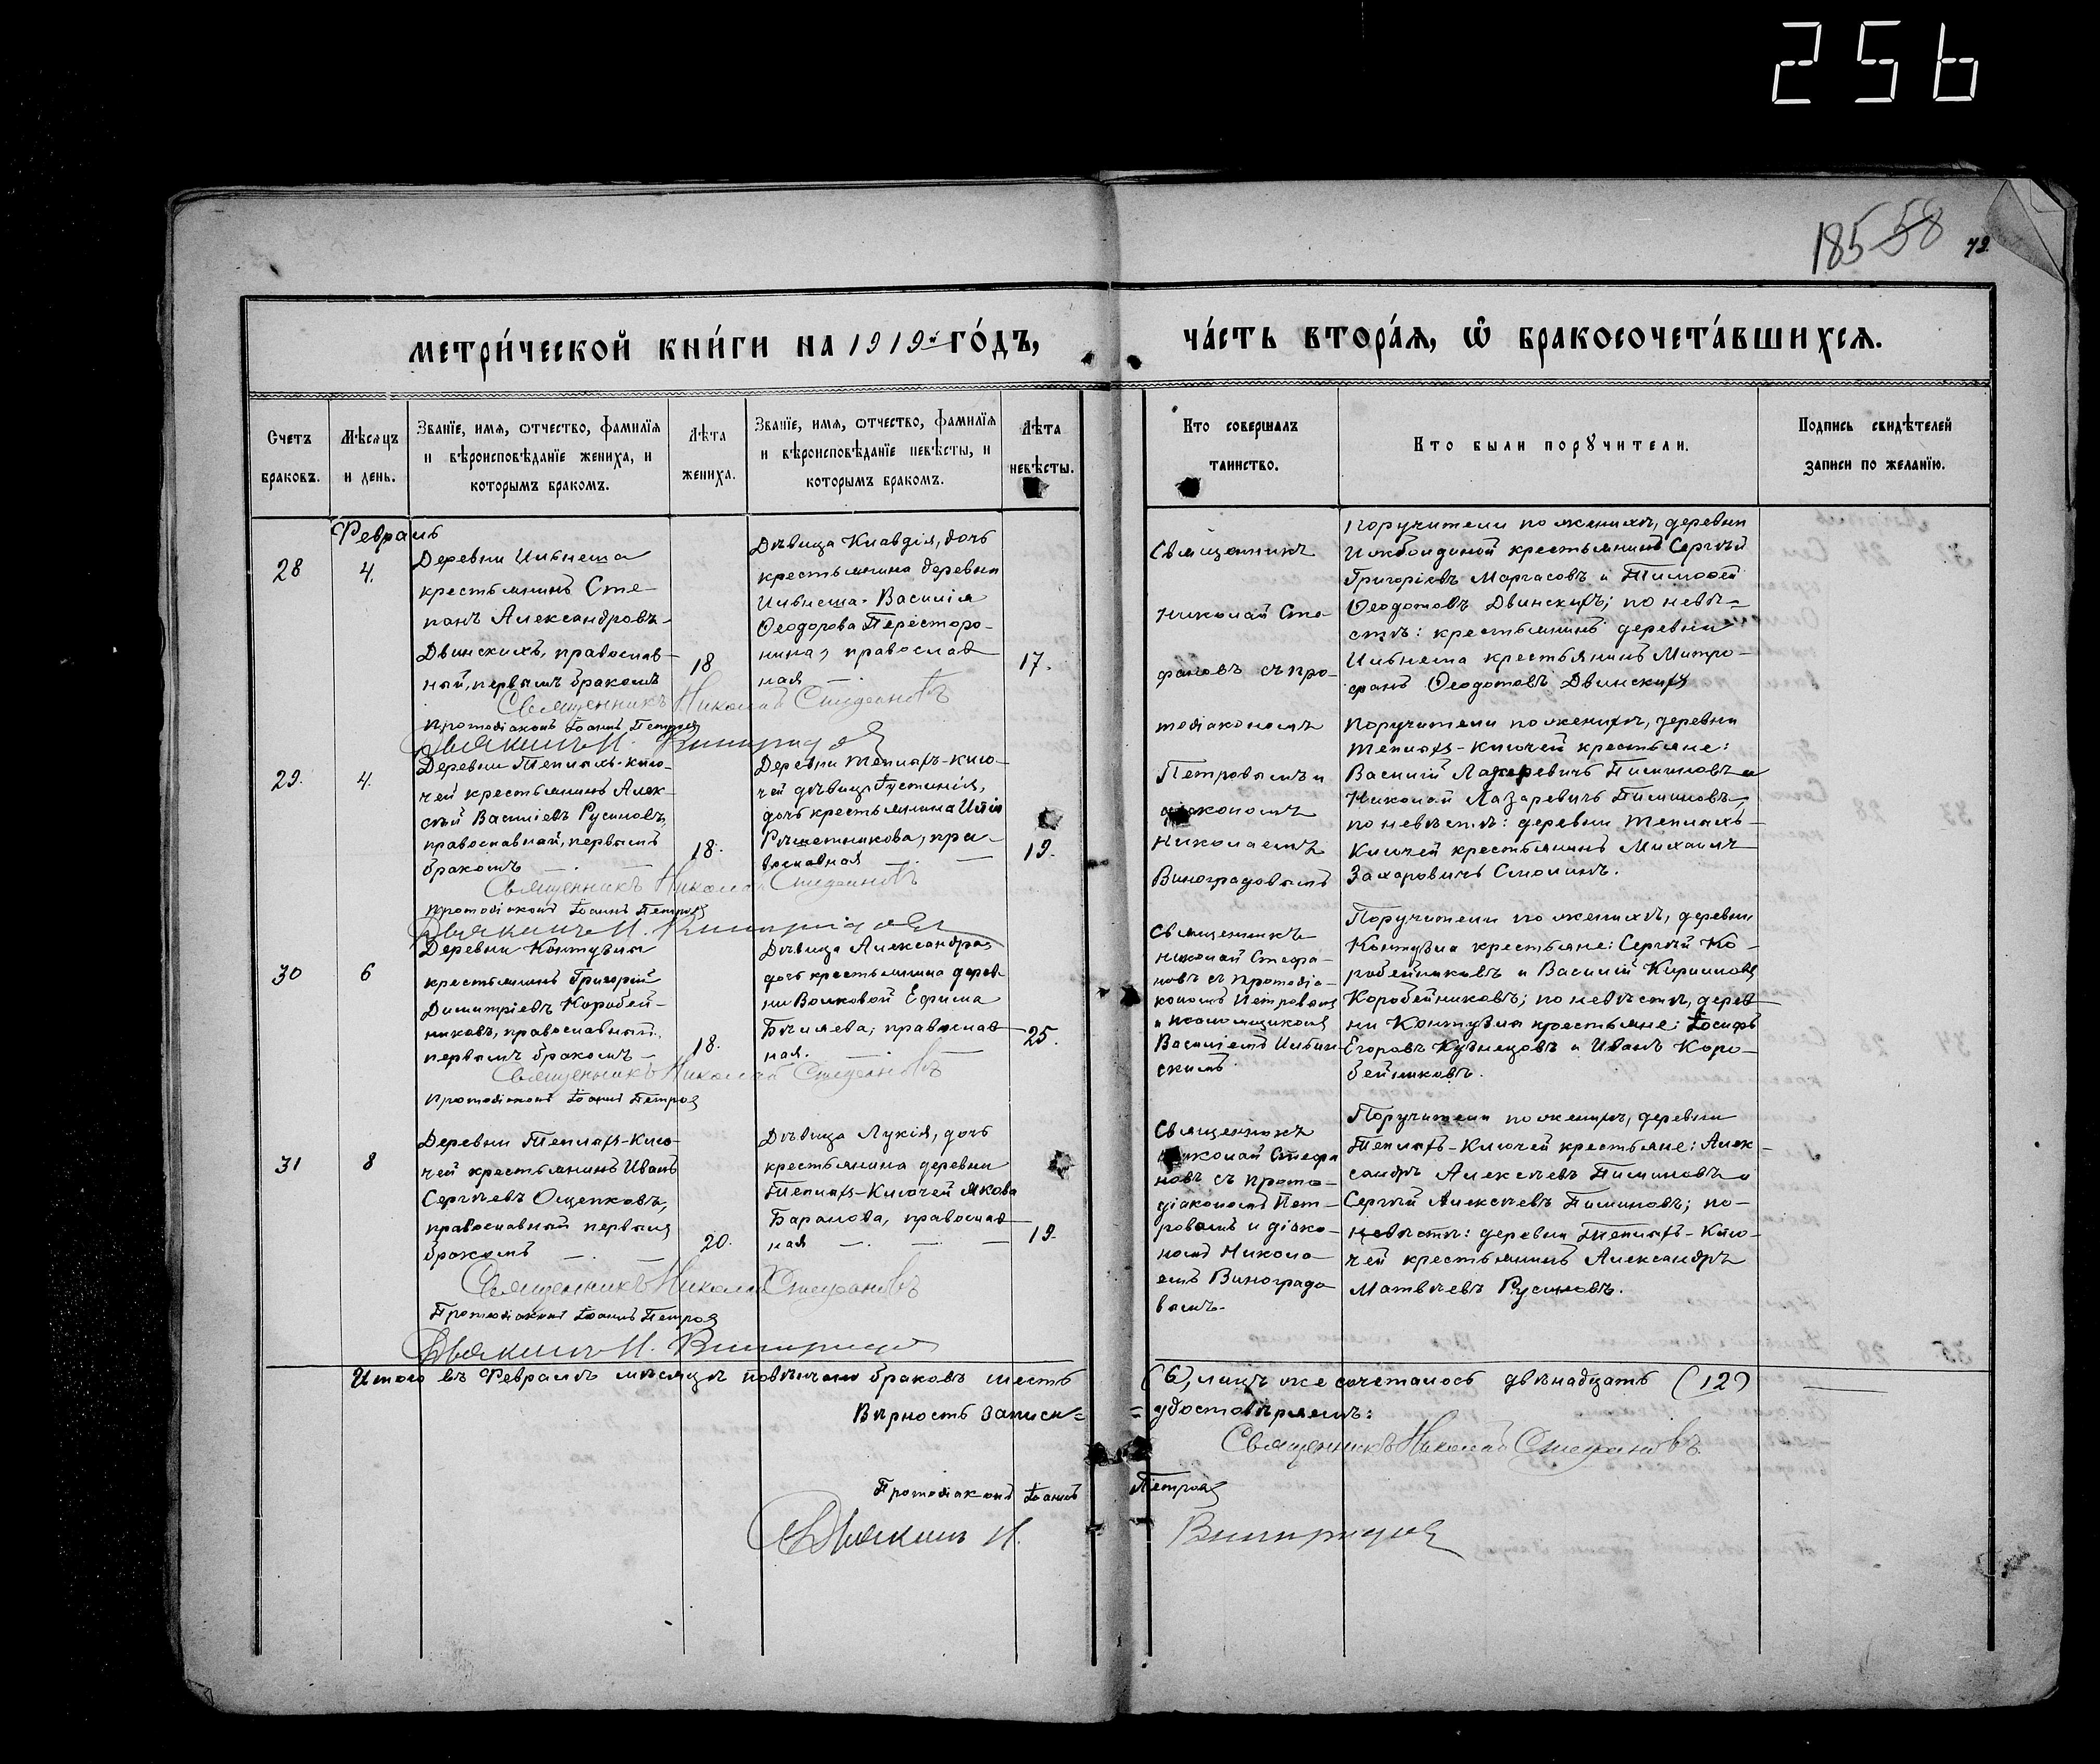 256
185 58 72.
МЕТРИ́ЧЕСКОЙ КНИ́ГИ НА 1919й ГО́ДЪ,
ЧА́СТЬ ВТОРА́Я, Ѿ БРАКОСОЧЕТА́ВШИХСЯ.
Счетъ браковъ.
Мѣсяцъ и день.
Званїе, имя, отчество, фамилїя
и вѣроисповѣданїе жениха, и
которымъ бракомъ.
Лѣта жениха.
Званїе, имя, отчество, фамилїя
и вѣроисповѣданїе невѣсты, и
которымъ бракомъ.
Лѣта невѣсты.
Кто совершалъ
таинство.
Кто были порꙋчители.
Подпись свидѣтелей
записи по желанїю.
Февраль
28
4.
Деревни Ильнеша
крестьянинъ Сте-
панъ Александровъ
Двинскихъ, православ-
ный, первымъ бракомъ
18
Дѣвица Клавдія, дочь
крестьянина деревни
Ильнеша Василія
Ѳеодорова Пересторо-
нина, православ-
ная —.
17.
Священникъ
Николай Сте-
фановъ съ про-
тодіакономъ
Петровымъ и
діакономъ
Николаемъ
Виноградовымъ
Поручители по женихѣ, деревни
крестьянинъ Сергѣй
Григоріевъ Маргасовъ и Тимоѳей
Ѳеодотовъ Двинскихъ; по невѣ=
стѣ: крестьянинъ деревни
Ильнеша крестьянинъ Митро-
фанъ Ѳеодотовъ Двинскихъ
Священникъ Николай Стефановъ
Протодіаконъ Іоаннъ Петровъ
Діаконъ Н. Виноградовъ
29.
4.
Деревни Теплыхъ-Клю-
чей крестьянинъ Алек-
сѣй Василіевъ Русиновъ,
православный, первымъ
бракомъ —.
18.
Деревни Теплыхъ-Клю-
чей дѣвица Іустинія,
дочь крестьянина Иліи
Рѣшетникова, пра-
вославная —. —
19.
Поручители по женихѣ, деревни
Теплыхъ-Ключей крестьяне:
Василій Лазаревичъ Пиминовъ и
Николай Лазаревичъ Пиминовъ,
по невѣстѣ: деревни Теплыхъ-
Ключей крестьянинъ Михаилъ
Захаровичъ Смолинъ.
Священникъ Николай Стефановъ
Протодіаконъ Іоаннъ Петровъ
Діаконъ Н. Виноградовъ
30
6
Деревни
крестьянинъ Григорій
Димитріевъ Коробей-
никовъ, православный,
первымъ бракомъ —
18.
Дѣвица Александра
дочь крестьянина дерев-
ни Волковой Ефима
Бѣляева, православ-
ная. —. —
25.
Священникъ
Николай Стефа-
новъ съ протодіа-
кономъ Петровымъ
и псаломщикомъ
Василіемъ Ильин-
скимъ.
Поручители по женихѣ, деревни
крестьяне: Сергѣй Ко-
робейниковъ и Василій Кирилловъ
Коробейниковъ; по невѣстѣ, дерев-
ни крестьяне: Іосифъ
Егоровъ Кузнецовъ и Иванъ Коро-
бейниковъ.
Священникъ Николай Стефановъ
Протодіаконъ Іоаннъ Петровъ
31
8
Деревни Теплыхъ-Клю-
чей крестьянинъ Иванъ
Сергѣевъ Ощепковъ,
православный первымъ
бракомъ —. —
20.
Дѣвица Лукія, дочь
крестьянина деревни
Теплыхъ-Ключей Якова
Баранова, православ-
ная —. —. —
19.
Священникъ
Николай Стефа
новъ съ прото-
діакономъ Пет-
ровымъ и діако-
номъ Никола-
емъ Виноградо
вымъ.
Поручители по женихѣ, деревни
Теплыхъ-Ключей крестьяне: Алек-
сандръ Алексѣевъ Пиминовъ и
Сергѣй Алексѣевъ Пиминовъ; по-
невѣстѣ: деревни Теплыхъ-Клю-
чей крестьянинъ Александръ
Матвѣевъ Русиновъ.
Священникъ Николай Стефановъ
Протодіаконъ Іоаннъ Петровъ
Діаконъ Н. Виноградовъ
Итого въ Февралѣ мѣсяцѣ повѣнчано браковъ шесть (6), лицъ же сочеталось двѣнадцать (12)
Вѣрность записи= =удостовѣряемъ:
Священникъ Николай Стефановъ
Протодіаконъ Іоаннъ Петровъ
Діаконъ Н. Виноградовъ